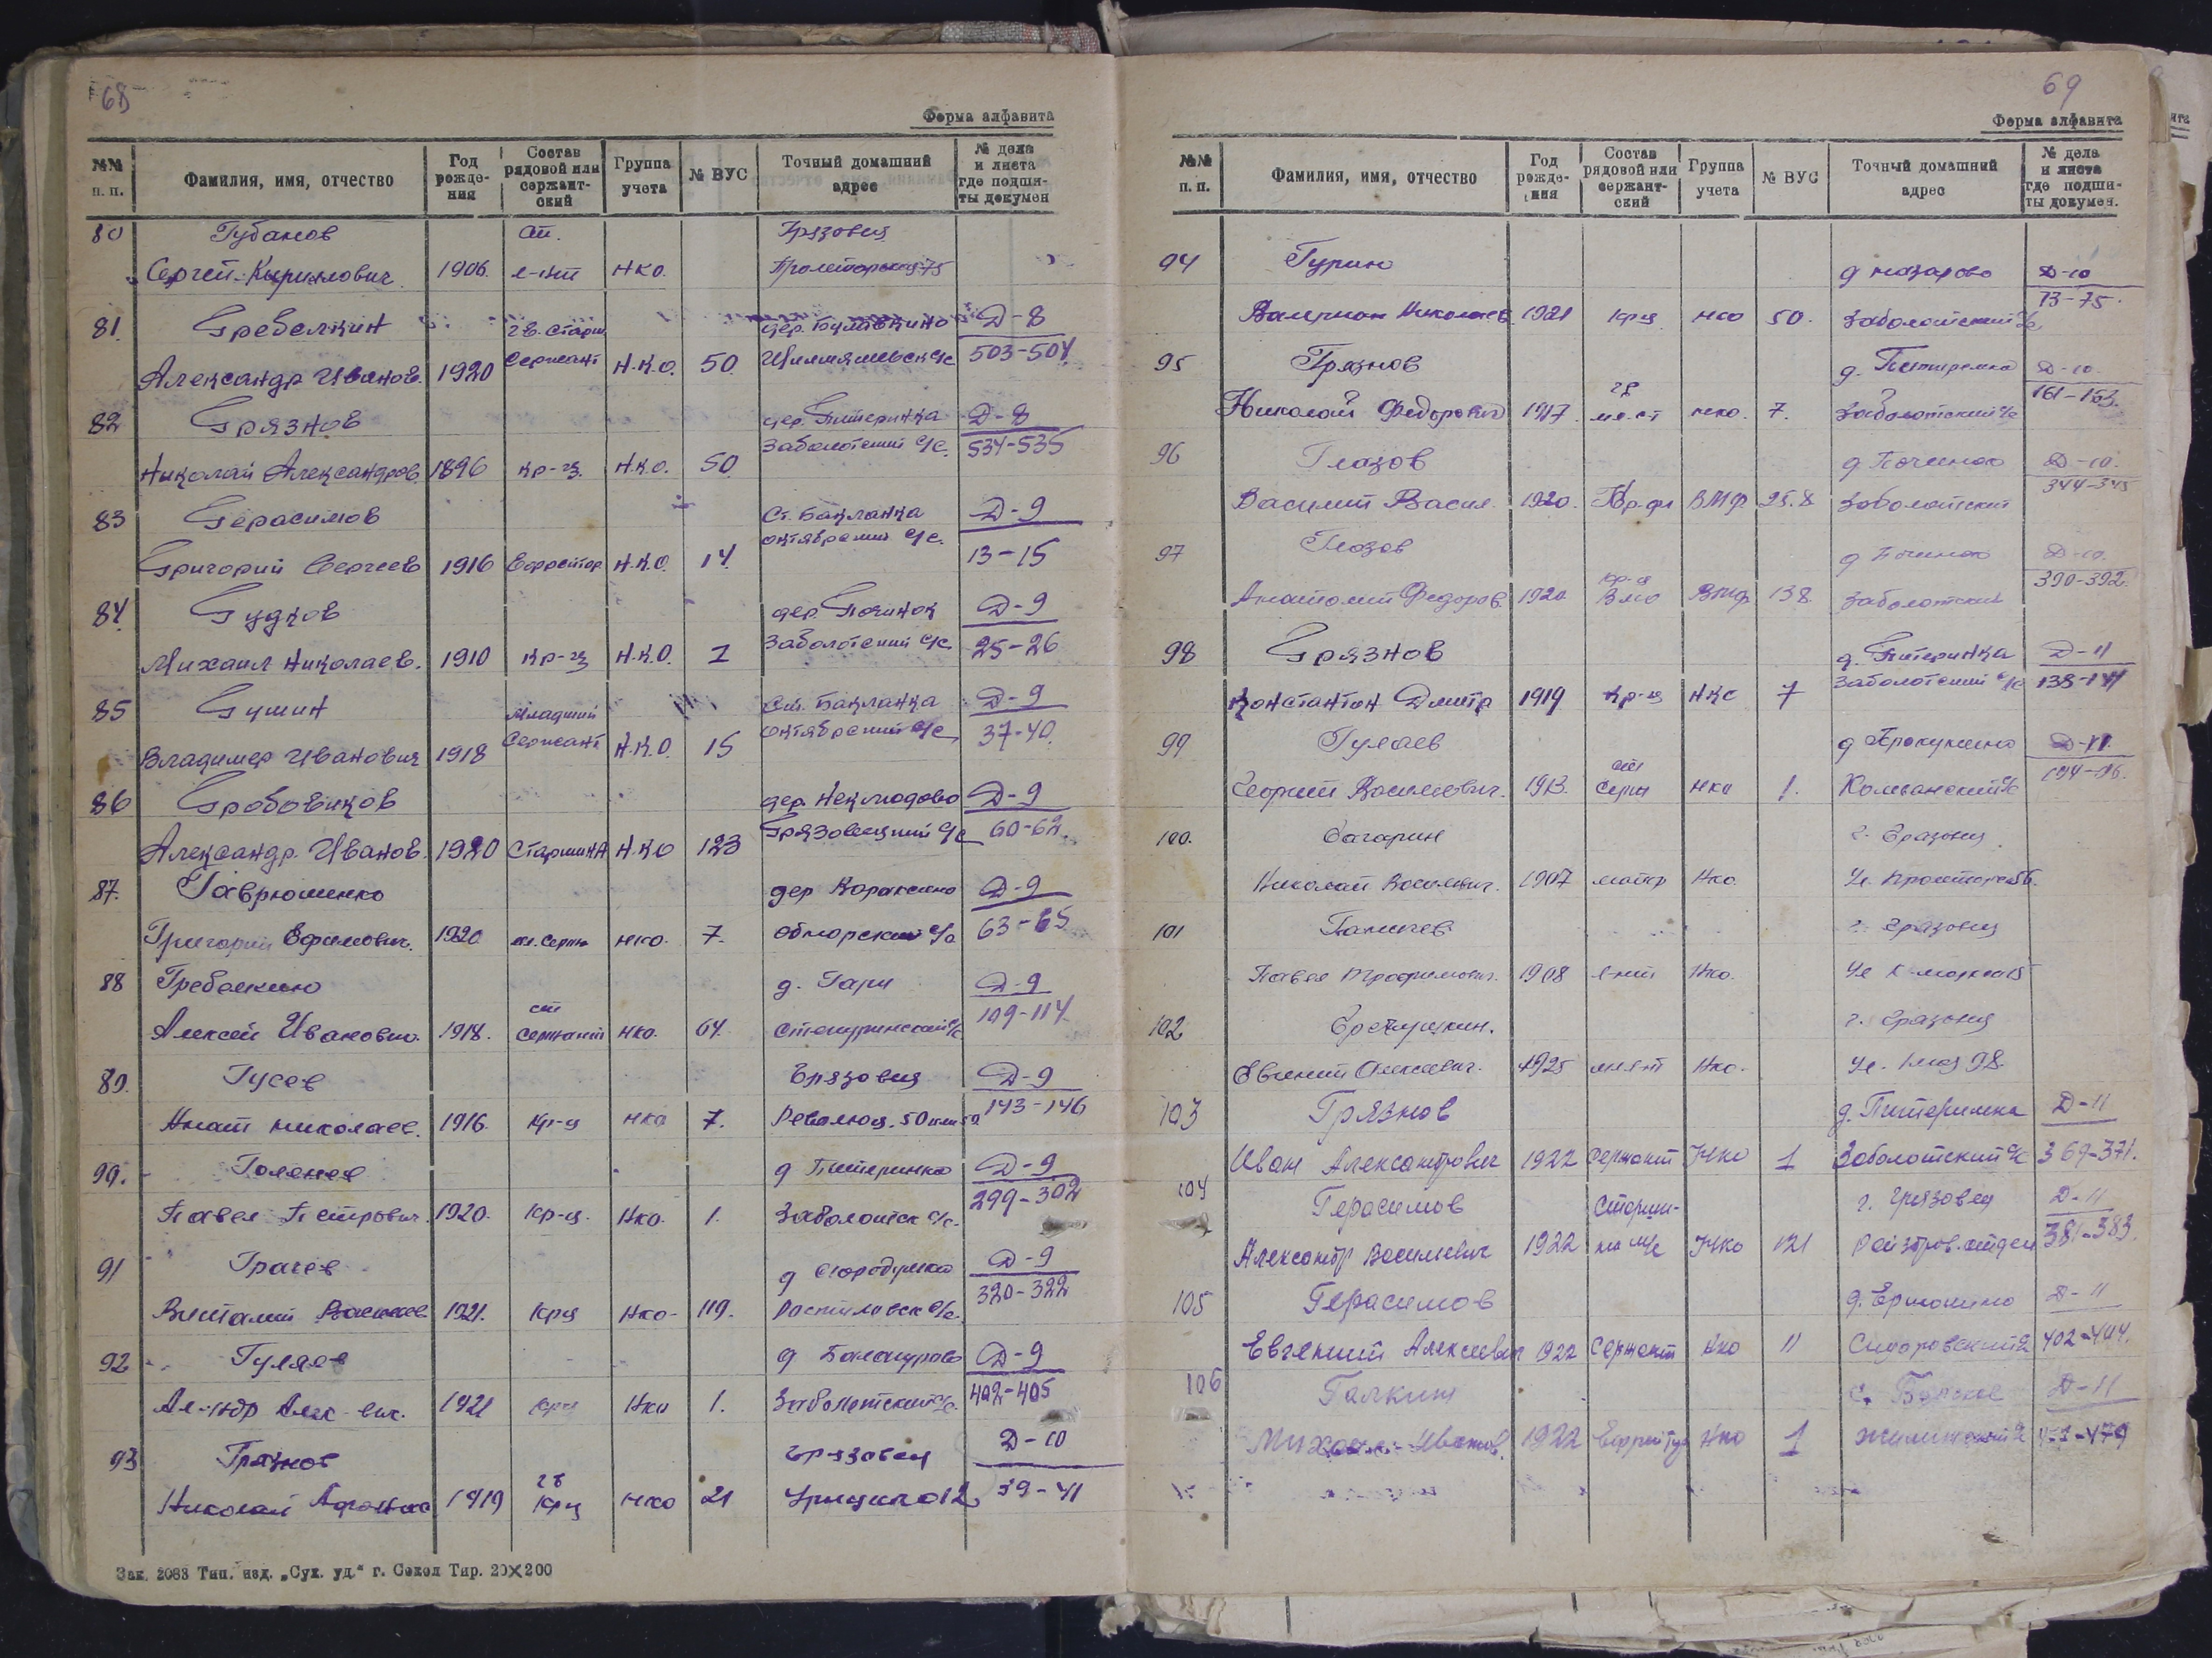 68
Форма алфавита
№№ п. п.
Фамилия, имя, отчество
Год рожде-ния
Состав рядовой или сержант-ский
Группа учета
№ ВУС
Точный домашний адрес
№ дела и листа где подши-ты докумен
80 Губанов ст. Грязовец
Сергей Кириллович 1906 л-нт НКО. 75
81. Гребелкин гв. старш. дер. Булавкино Д-8
Александр Иванов. 1920 Сержант Н.К.О. 50. 503-504
82 Грязнов дер. Питеринка Д-8
Николай Александров. 1896 кр-ц. Н.К.О. 50 Заболотский с/с. 534-535
83 Герасимов Ст. Бакланка Д-9
Григорий Сергеев 1916 Ефрейтор Н.К.О. 14. октябрьский с/с. 13-15
84. Гудков дер. Починок Д-9
Михаил Николаев. 1910 кр-ц Н.К.О. 1 Заболотский с/с 25-26
85 Гумин Младший Ст. Бакланка Д-9
Владимер Иванович 1918 Сержант Н.К.О. 15 октябрьский с/с 37-40.
86 Гробовиков дер. Неклюдово Д-9
Александр Иванов. 1920 Старшина Н.К.О 123 Грязовецкий с/с 60-62.
87. Гаврюшенко дер Д-9
Григорий Ефимович. 1920 мл. серж НКО. 7. обнорский с/с 63-65
88 Гребелкин д. Гари Д-9
Алексей Иванович. 1918. ст сержант НКО. 64. 109-114
89. Гусев Грязовец Д-9
Игнат Николаев. 1916. Кр-ц НКО 7. Революц. 143-146
90. д Питеринка Д-9
Павел Петрович. 1920. кр-ц. НКО. 1. Заболотск с/с. 299-302
91 Грачев д Д-9
Виталий 1921. крц НКО- 119. Ростиловск с/с. 320-322
92 Гуляев д Д-9
Ал-ндр Алек-вич. 1921 крц НКО 1. Заболотский с/с. 402-405
93 Грязнов Грязовец Д-10
Николай 1919 гв крц НКО 21 Урицкого 12 39-41
Зак. 2083 Тип. изд. „Сух. уд.“ г. Сокол Тир. 20×200
69
Форма алфавита
№№ п. п.
Фамилия, имя, отчество
Год рожде-ния
Состав рядовой или сержант-ский
Группа учета
№ ВУС
Точный домашний адрес
№ дела и листа где подши-ты докумен.
94 Гурин д Назарово Д-10
Валериан Николаев. 1921 крц НКО 50. Заболотский с/с 73-75.
95 Грязнов д. Питеринка Д-10.
Николай Федорович 1917 НКО. 7. Заболотский с/с 161-163.
96 Глазов д Починок Д-10.
Василий Васил. 1920. ВМФ Заболотский 344-345
97 Глазов д Починок Д-10.
Анатолий Федоров. 1920 ВМФ 138. Заболотский 390-392.
98 Грязнов д. Питеринка Д-11
Константин Дмитр 1919 Кр-ц НКО 7 Заболотский с/с
99 Гуляев д Прокунино Д-11.
Георгий Васильевич. 1913. ст серж НКО 1.
100. Гагарин г. Грязовец
Николай Васильевич. 1907 майор НКО.
101 г. Грязовец
Павел Трофимович. 1908 л-нт НКО. Ул К-Маркса
102 г. Грязовец
Евгений Алексеевич. 1925 мл л-т НКО. Ул. 1 мая 98.
103 Грязнов д. Питеринка Д-11
Иван Александрович 1922 Сержант НКО 1 Заболотский с/с 369-371.
104 Герасимов Старши- г. Грязовец Д-11
Александр Васильевич 1922 на м/с НКО 121 Райздрав.отдел 381-383.
105 Герасимов Д-11
Евгений Алексеевич 1922 Сержант НКО 11 Сидоровский 402-404.
106 Галкин Д-11
Иванов. 1922 Ефрейтор НКО 1